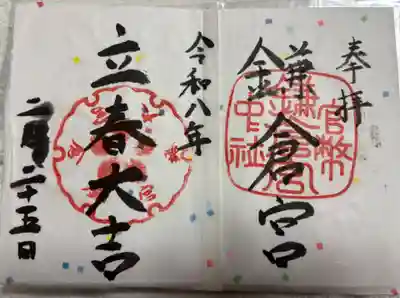 奉拝
鎌倉宮
官幣
中社
令和八年
立春大吉
二十五日